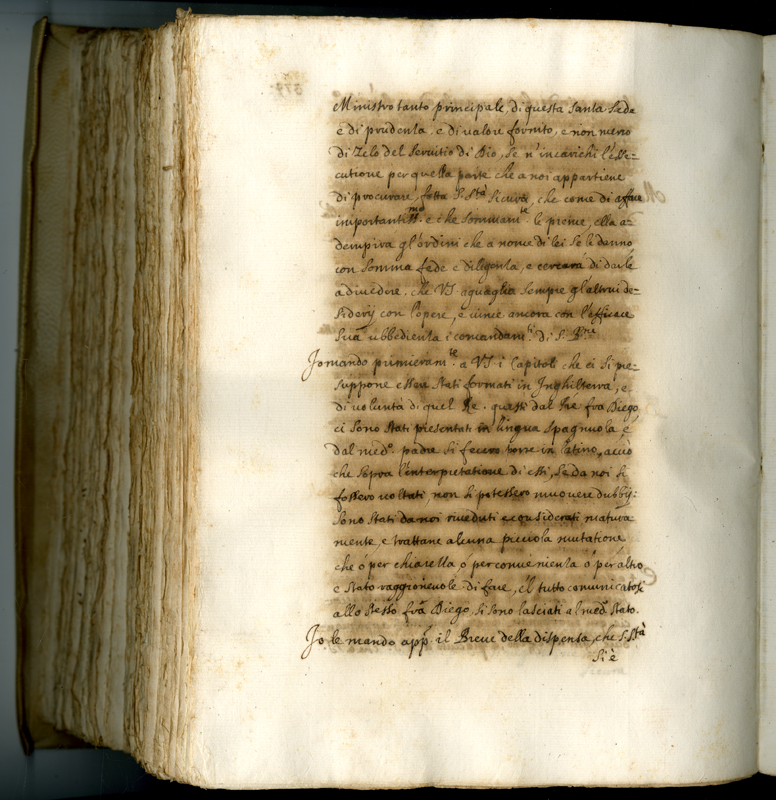 Ministro tanto principale, di questa Santa Sede
e di prudenza, e di valore fornito, e non meno
di Zelo del Servitio di Dio, Se n'incarichi l'esse=
cutione per quella parte che a noi appartiene
di procurare, S. Stà Sicura, che come di affare
importantissmo e che sommamte le preme, ella a=
dempirà gl'ordini che a nome di lei Se le danno
con Somma fede e diligenza, e cercarà di darle
a divedere, che VS. aguaglia Sempre gl'altrui de=
siderij con l'opere, e vince ancora con l'efficace
Sua ubbedienza i comandamti di S. Bne
Io mando primieramte a VS. i Capitoli che ci Si pre=
suppone essere Stati formati in Inghilterra, e
di voluntà di quel Re. questi dal Pre fra Diego
ci Sono Stati presentati in lingua Spagnuola e
dal medo padre Si fecero porre in latino, acciò
che sopra l'interpretatione di essi, Se da noi Si
fossero voltati non Si potessero muovere dubbij:
Sono Stati da noi riveduti e considerati matura=
mente, e trattane alcuna piccola mutatione
che ò per chiarezza ò per convenienza ò per altro
è Stato raggionevole di fare, e'l tutto comunicatosi
allo Stesso fra Diego, Si Sono lasciati al med. Stato.
Io le mando appo il Breve della dispensa, che S. Stà
Si è